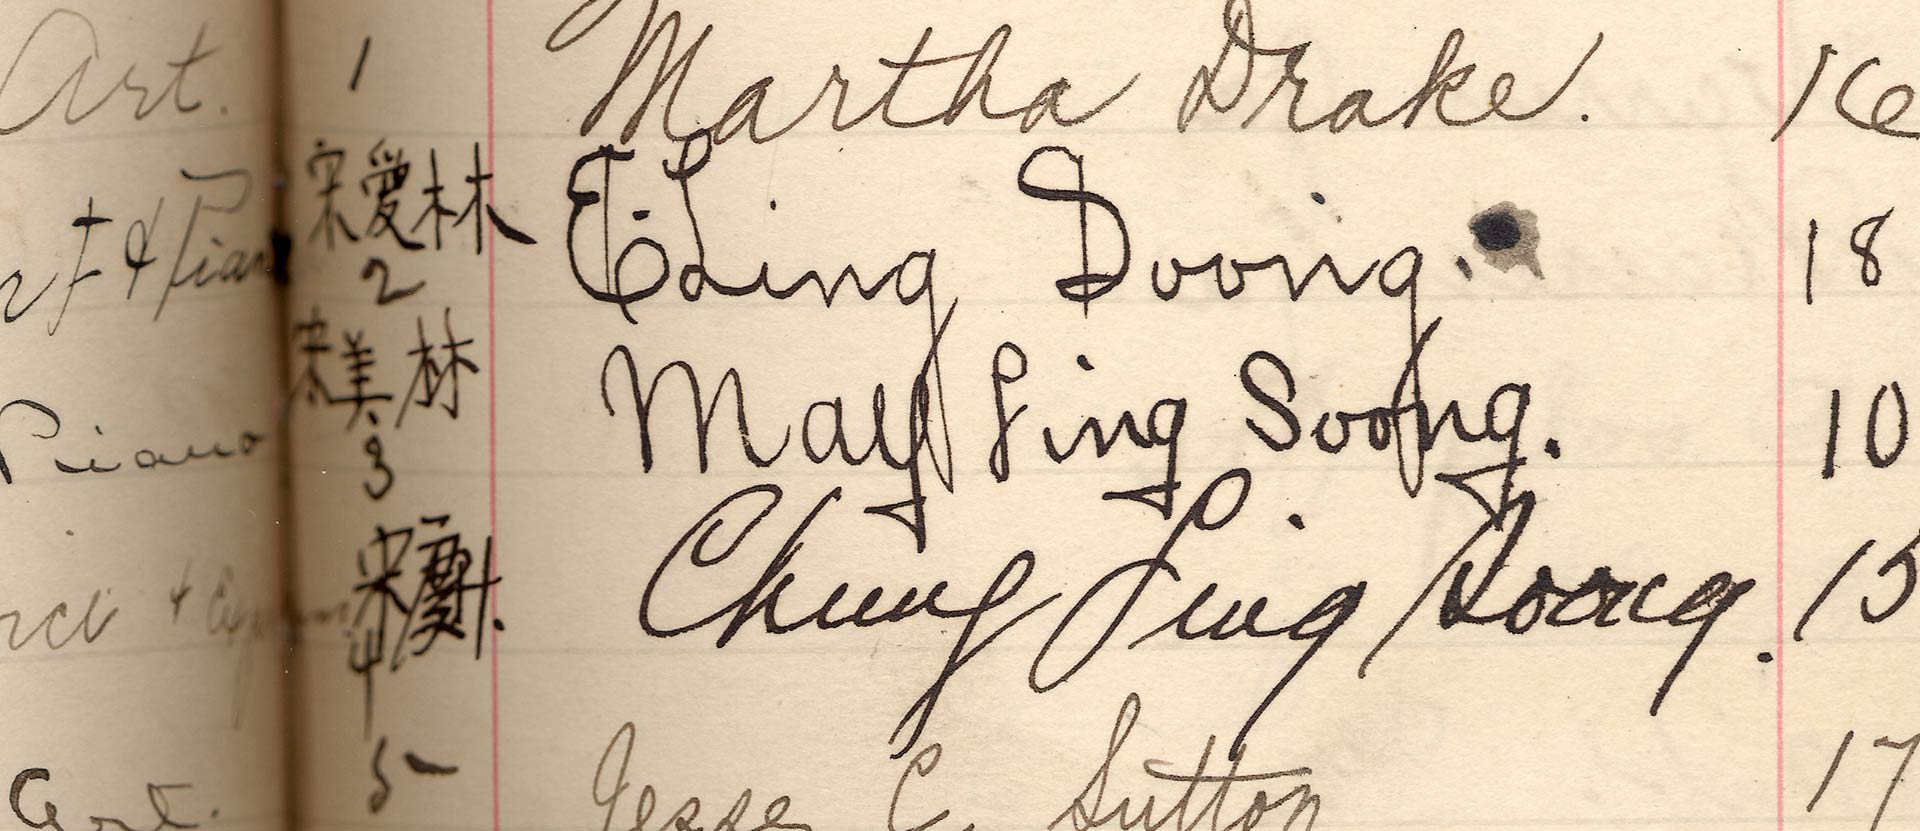 Art. 1 Martha Drake. 16
宋愛林
& Pian 2 E. Ling Soong. 18
宋美林
Piano 3 May Ling Soong. 10
宋慶林.
4 Chung Ling Soong. 15
Art. 5 Jesse C. Sutton 17